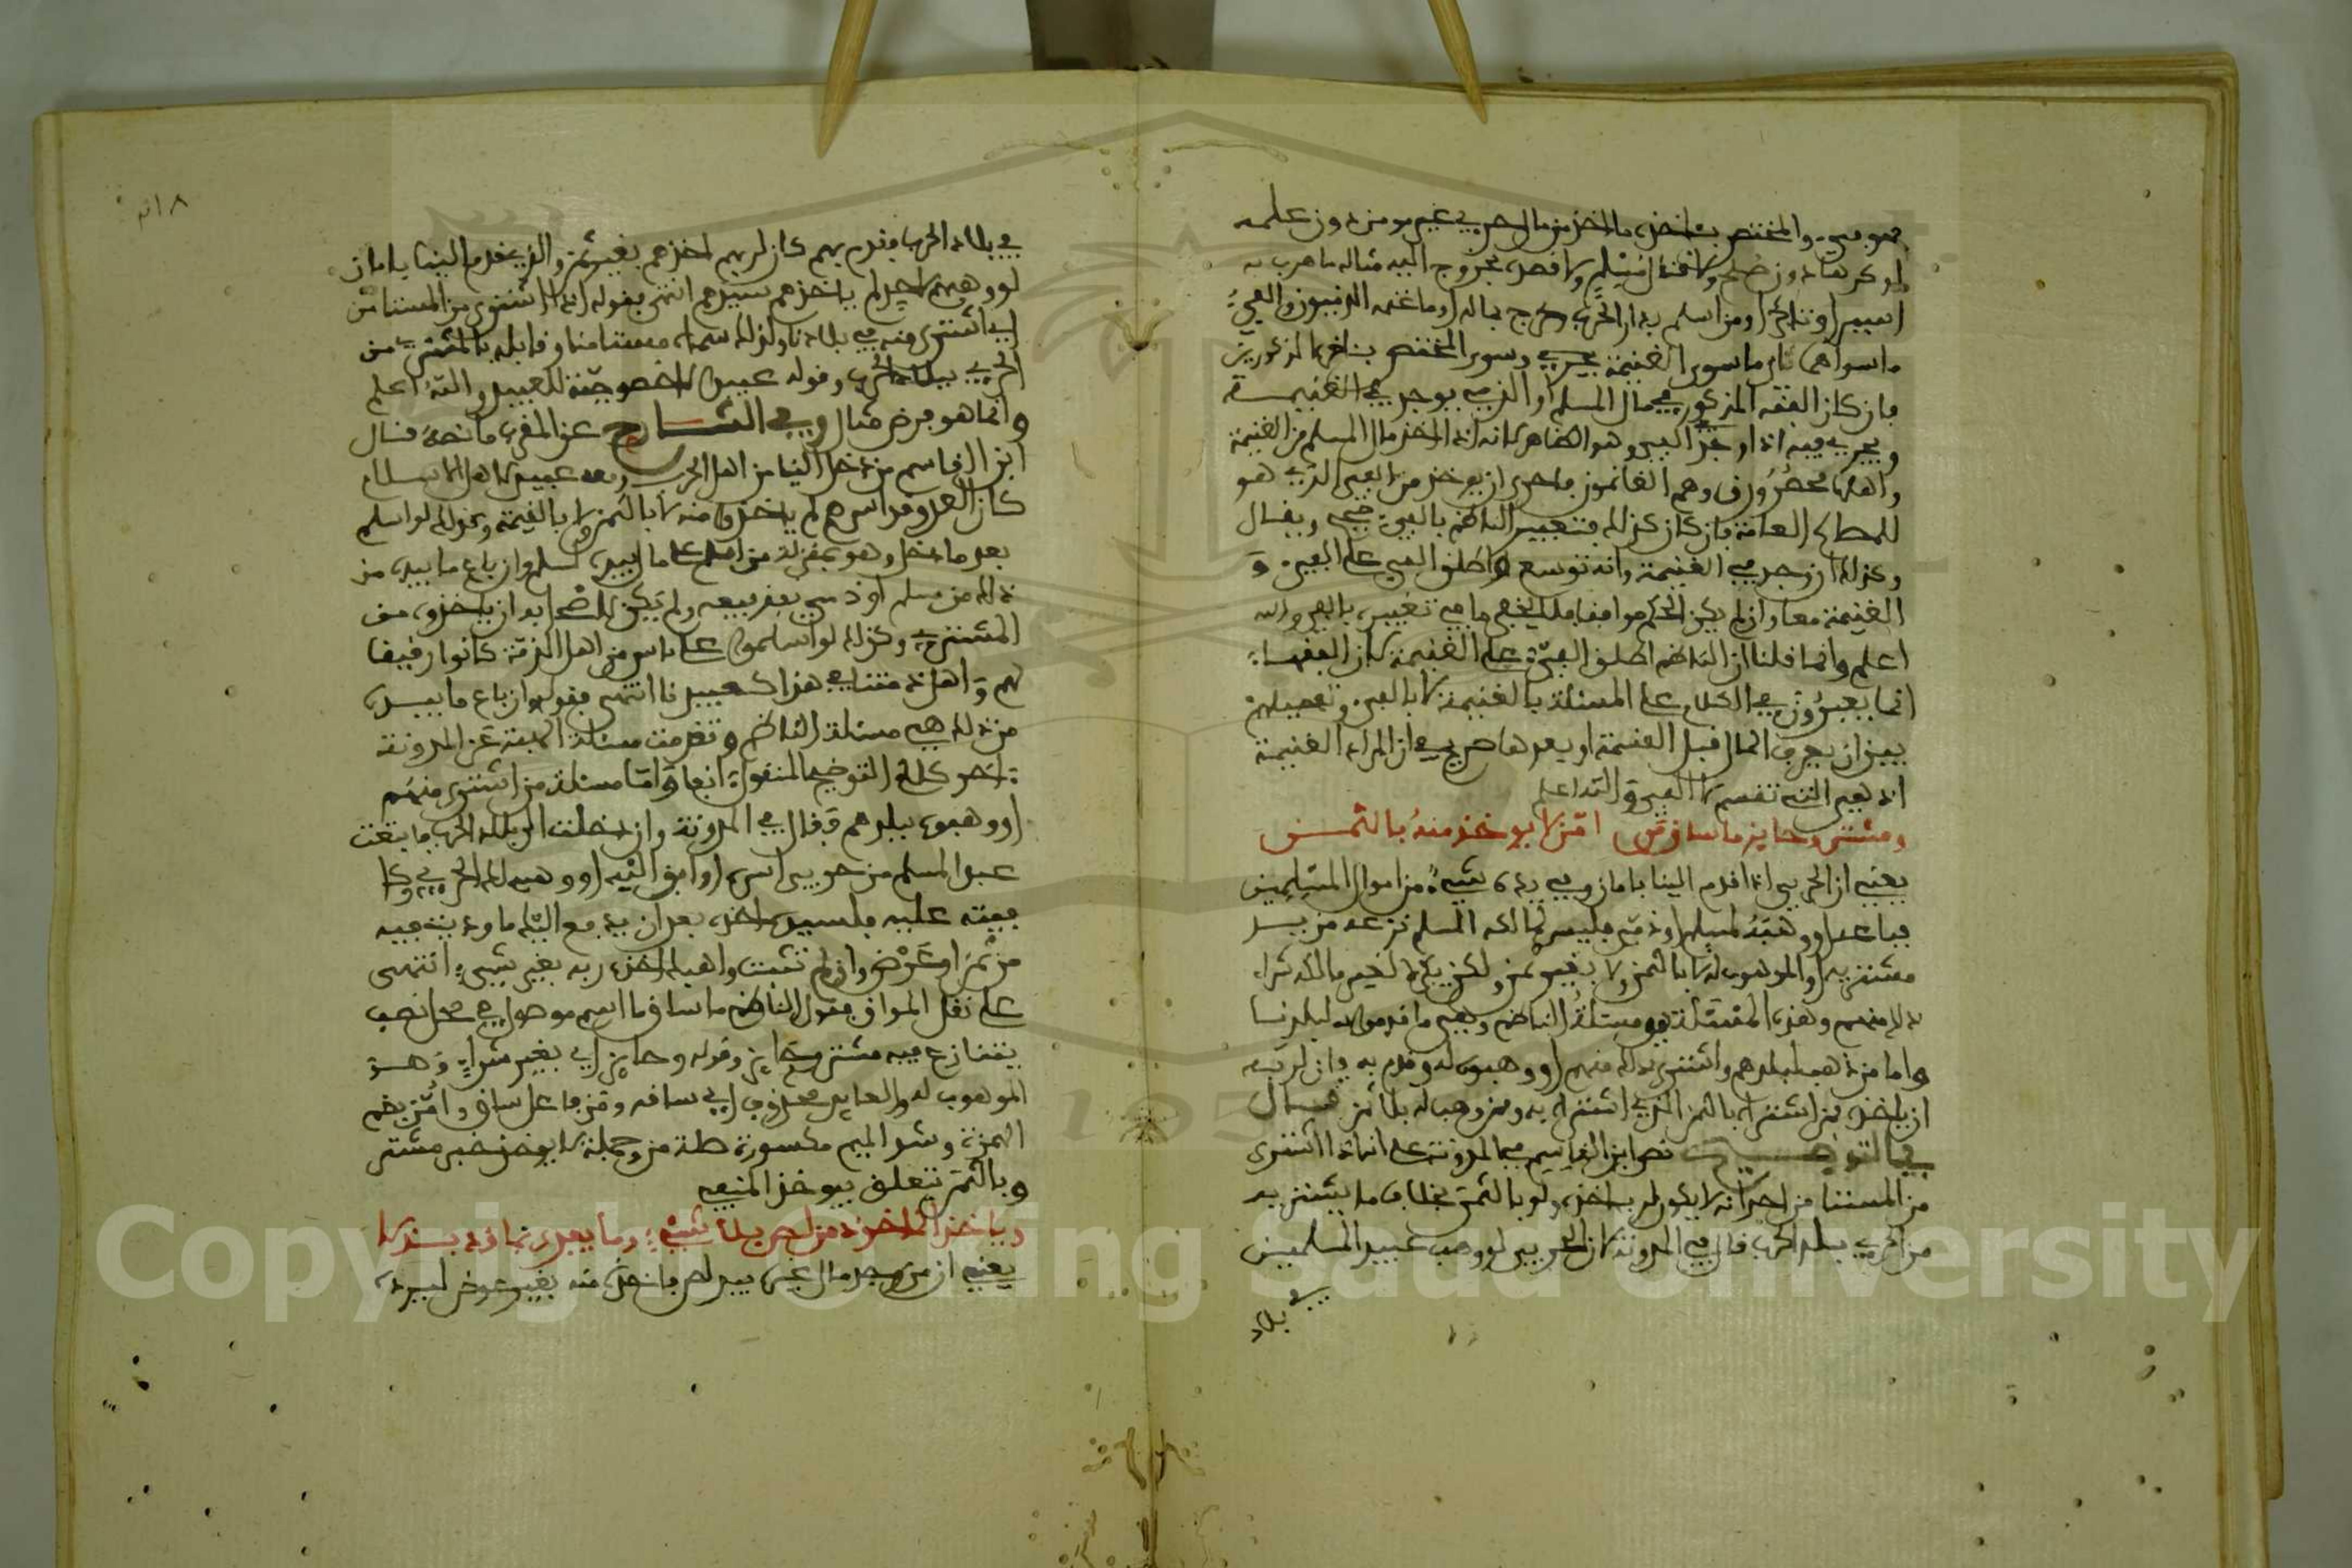 فهو فيء والمختص بأخذه ما أخذ من مال حربي غير مؤمن دون علمه
أو كرها دون صلح ولا قتال مسلم ولا قصده بخروج اليه مثاله ما هرب به
اسير او تاجر او من اسلم بدار الحرب وخرج بماله او ما غنمه الذميون والفيء
ما سواهما اي ما سوى الغنيمة وسوى المختص بأخذه المذكورين
فان كان الفقه المذكور في مال المسلم او الذمي يوجد في الغنيمة
ويجري فيه اذا وجد في الفيء وهو الظاهر لانه اذا اخذ مال المسلم من الغنيمة
واهلها محصورون وهم الغانمون فاحرى ان يؤخذ من الفيء الذي هو
للمصالح العامة فان كان كذلك فتعبير الناظم بالفيء صحيح ويقال
وكذلك ان وجد في الغنيمة وانه توسع واطلق الفيء على الفيء و
الغنيمة معا وان لم يكن الحكم موافقا فلا يخفى ما في تعبيره بالفيء والله
اعلم وانما قلنا ان الناظم اطلق الفيء على الغنيمة لان الفقهاء
انما يعبرون في الكلام على المسئلة بالغنيمة لا بالفيء وتفصيلهم
بين ان يعرف المال قبل القسمة او بعدها صريح في ان المراد الغنيمة
اذ هي التي تقسم لا الفيء والله اعلم
ومشتر وحايز ما ساق من امن لا يؤخذ منه بالثمن
يعني ان الحربي اذا قدم الينا بامان وفي يده شيء من اموال المسلمين
فباعه او وهبه لمسلم او ذمي فليس لمالكه المسلم نزعه من يد
مشتريه او الموهوب له لا بالثمن ولا بغير ثمن ولكن يكره لغير مالكه شراء
ذلك منهم وهذه المسئلة هي مسئلة الناظم وهي ما قدموا به لبلدنا
واما من ذهب لبلدهم واشترى ذلك منهم او وهبوه له وقدم به فان لربه
ان ياخذه ممن اشتراه بالثمن الذي اشتراه به وممن وهب له بلا ثمن قال
في التوضيح نص ابن القاسم في المدونة على انه اذا اشترى
من المستامن احد انه لا يكون لربه اخذه ولو بالثمن بخلاف ما يشتريه
من الحربي ببلد الحرب قال في المدونة لان الحربي لو وهب عبيد المسلمين
في بلاد
في بلاد الحرب فقدم بهم كان لربهم اخذهم بغير ثمن والذي قدم الينا بامان
لو وهبهم لاحد لم ياخذهم سيدهم انتهى فقوله اذا اشترى من المستامن
اي اشترى منه في بلادنا ولذلك سماه مستامنا وقابله بالمشتري من
الحربي ببلد الحرب وقوله عبيد لا خصوصية للعبيد والله اعلم
وانما هو فرض مثال وفي الشارح عن المقرب ما نصه قال
ابن القاسم من دخل الينا من اهل الحرب ومعه عبيد لاهل الاسلام
كان العدو قد اسرهم لم ياخذوا منه لا بالثمن ولا بالقيمة وكذلك لو اسلم
بعد ما دخل وهو بمنزلة من اسلم على ما بيده لسلم وان باع ما بيده من
ذلك من مسلم او ذمي بعد بيعه ولم يكن لاصحابه ان ياخذوه من
المشتري وكذلك لو اسلموا على ناس من اهل الذمة كانوا رقيقا
لهم واهل ذمتنا في هذا كعبيدنا انتهى فقوله وان باع ما بيده
من ذلك هي مسئلة الناظم وتقدمت مسئلة الهبة عن المدونة
اخر كلام التوضيح المنقول انفا واما مسئلة من اشترى منهم
او وهبوه ببلدهم فقال في المدونة وان دخلت الى بلد الحرب فابتعت
عبدا لمسلم من حربي اسره او ابق اليه او وهبه لك الحربي وكا
فيته عليه فلسيده اخذه بعد ان يدفع اليك ما وديت فيه
من ثمن او عرض وان لم تثب واهبك اخذه ربه بغير شيء انتهى
على نقل المواق فقول الناظم ما ساق ما اسم موصول في محل نصب
يتنازع فيه مشتر وحايز وقوله وحايز اي بغير شراء وهو
الموهوب له والعايد محذوف اي ساقه ومن فاعل ساق وامن بضم
الهمزة وشد الميم مكسورة صلة من وجملة لا يؤخذ خبر مشتر
وبالثمن يتعلق بيؤخذ المنفي
وياخذ الماخوذ من لص بلا شيء وما يفدى بما قد بذلا
يعني ان من وجد مال غيره بيد لص فاخذه منه بغير عوض ليرده